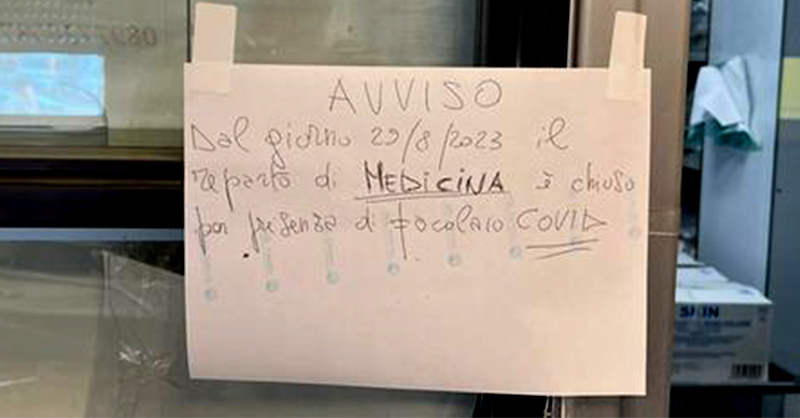 AVVISO
Dal giorno 29/8/2023 il
reparto di MEDICINA è chiuso
per presenza di focolaio COVID
SKIN